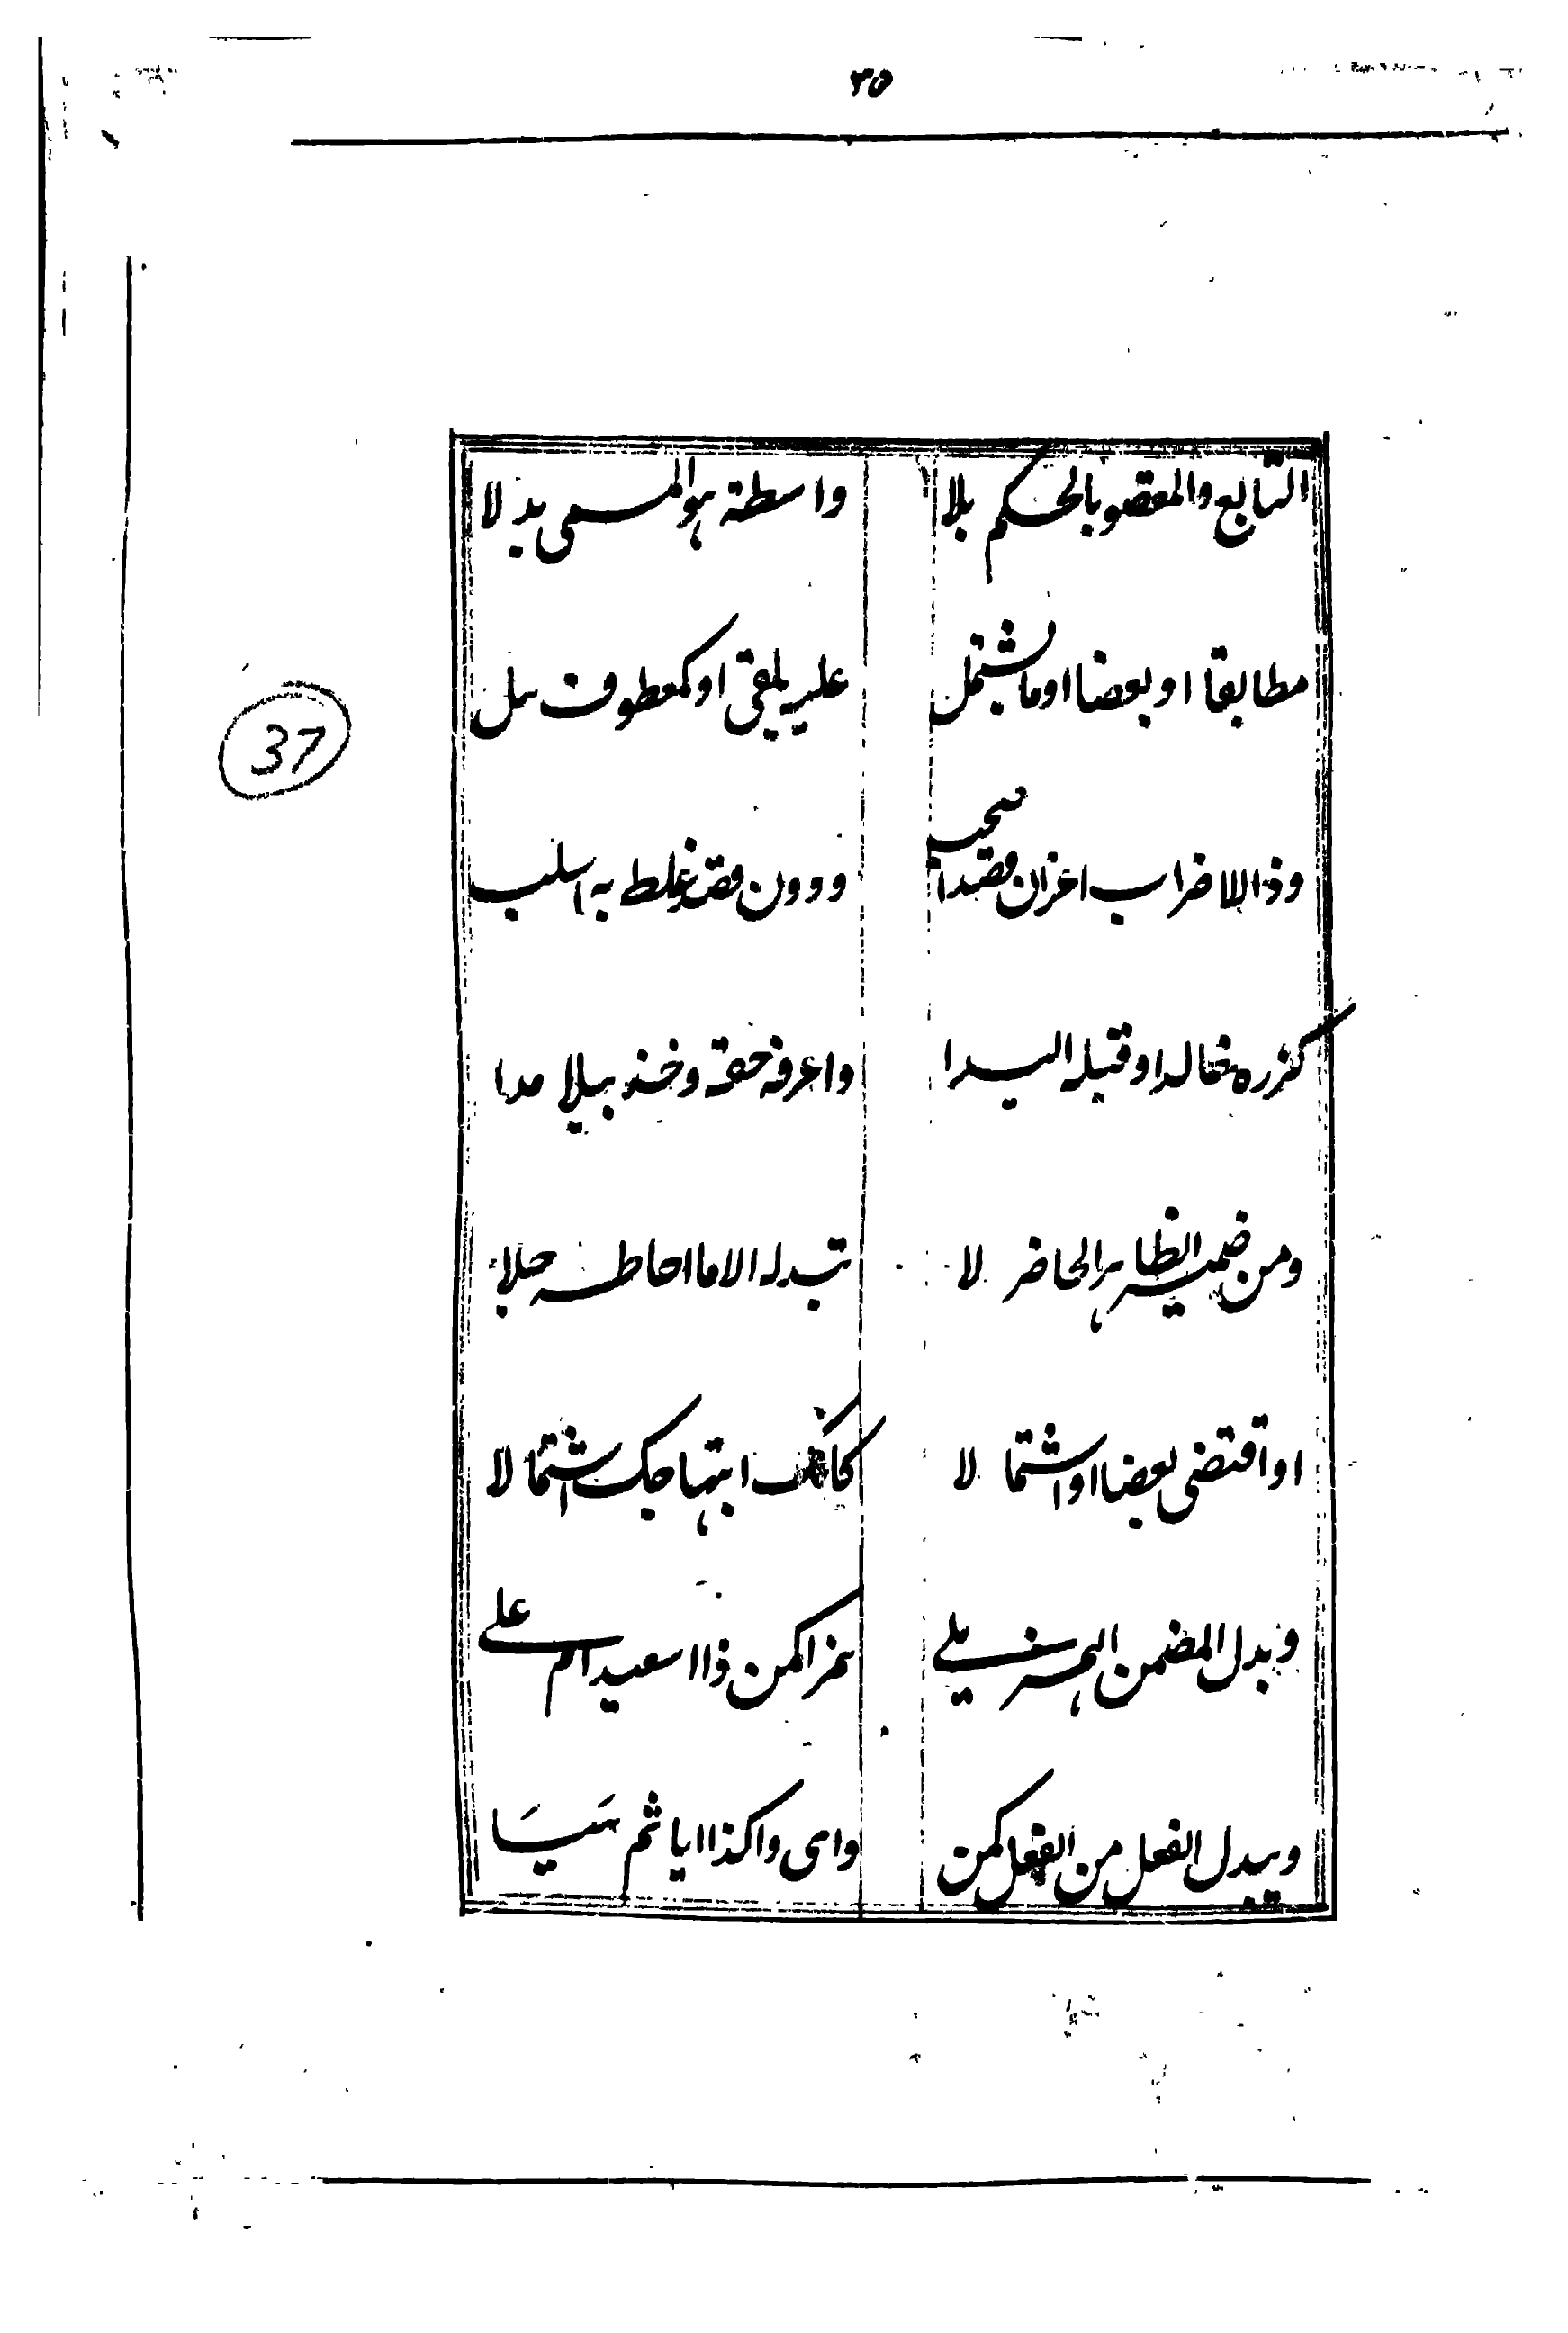 ٣٥
التابع والمقصو بالحكم بلا واسطة هو المسمى بدلا
مطابقا او بعضا او ما يشتمل عليه يلقى او كمعطوف ببل
وذا للاضراب اعز ان قصدا صحب ودون قصد غلط به سلب
كزره خالدا وقبله اليدا واعرفه حقه وخذ نبلا مدا
ومن ضمير الحاضر الظاهر لا تبدله الا ما احاطه جلا
او اقتضى بعضا او اشتمالا كانك ابتهاجك اشتمالا
وبدل المضمن الهمز يلي همزا كمن ذا اسعيد ام علي
ويبدل الفعل من الفعل كمن
واى وا كذا ايا ثم هيا
37